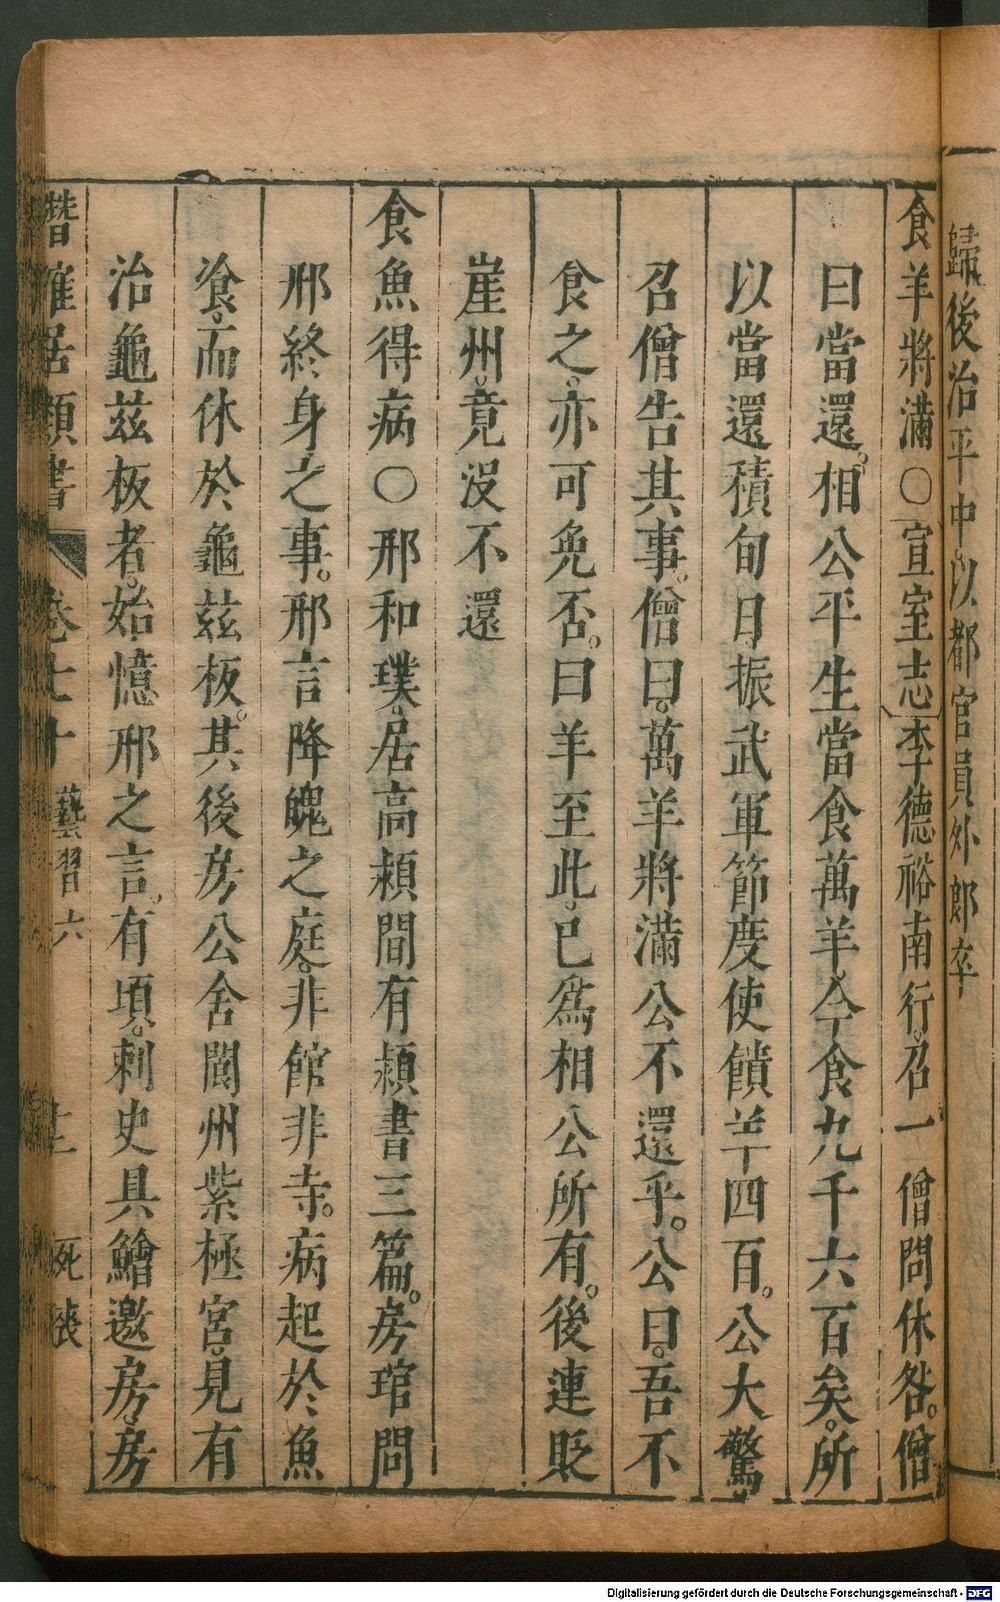 歸後治平中以都官員外郎卒
食羊將滿〇宣室志李德裕南行。召一僧問休咎。僧
曰當還。相公平生當食萬羊。今食九千六百矣。所
以當還積旬日振武軍節度使饋羊四百。公大驚
召僧告其事。僧曰。萬羊將滿公不還乎。公曰。吾不
食之。亦可免否。曰羊至此。已爲相公所有。後連貶
崖州。竟沒不還
食魚得病〇邢和璞。居高潁間有潁書三篇。房琯問
邢終身之事。邢言降魄之庭。非館非寺。病起於魚
飡。而休於龜茲板。其後房公舍閬州紫極宮。見有
治龜茲板者。始憶邢之言。有頃。刺史具鱠邀房。房
潛確居類書 卷七十 藝習六 十二 死喪
Digitalisierung gefördert durch die Deutsche Forschungsgemeinschaft - DFG